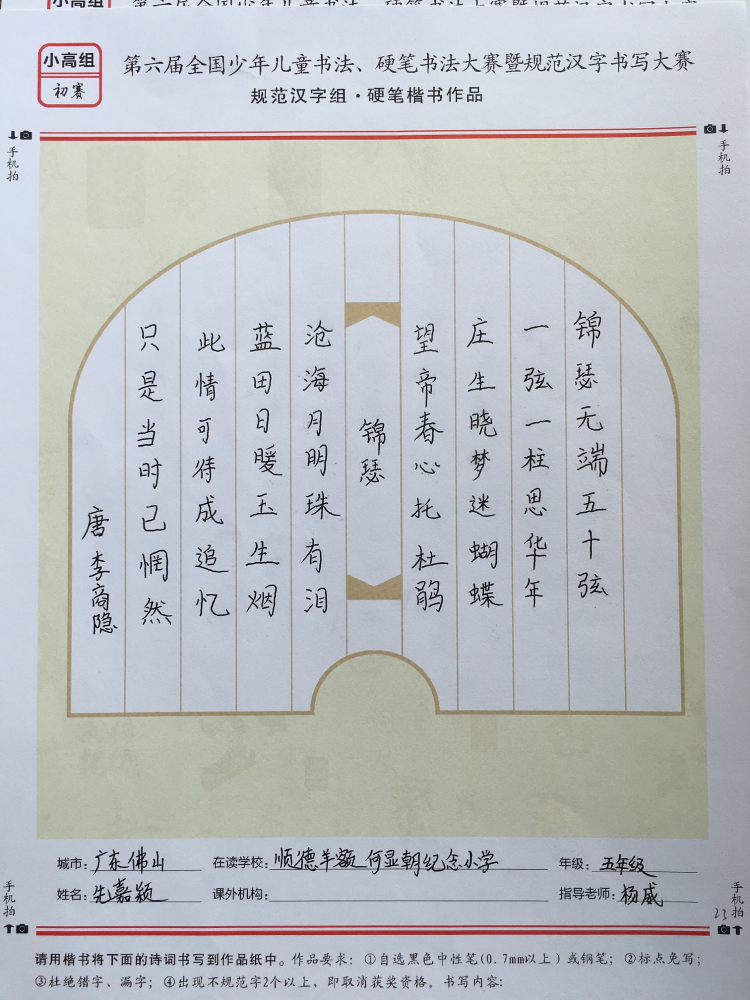 小高组
初赛
第六届全国少年儿童书法、硬笔书法大赛暨规范汉字书写大赛
规范汉字组·硬笔楷书作品
手机拍
手机拍
锦瑟无端五十弦
一弦一柱思华年
庄生晓梦迷蝴蝶
望帝春心托杜鹃
锦瑟
沧海月明珠有泪
蓝田日暖玉生烟
此情可待成追忆
只是当时已惘然
唐 李商隐
城市: 广东佛山 在读学校: 顺德羊额何显朝纪念小学 年级: 五年级
姓名: 冼嘉颖 课外机构: 指导老师: 杨威
手机拍
手机拍
23
请用楷书将下面的诗词书写到作品纸中。作品要求: ①自选黑色中性笔(0.7mm以上)或钢笔; ②标点免写;
③杜绝错字、漏字; ④出现不规范字2个以上, 即取消获奖资格。书写内容: